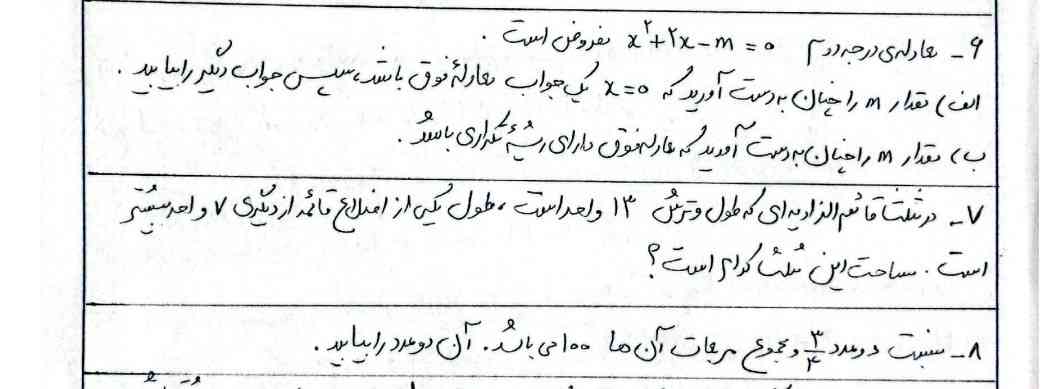 ۶ـ معادله‌ی درجه دوم x²+۲x-m=۰ مفروض است.
الف) مقدار m را چنان به دست آورید که x=۰ یک جواب معادلهٔ فوق باشد، سپس جواب دیگر را بیابید.
ب) مقدار m را چنان به دست آورید که معادله فوق دارای ریشهٔ تکراری باشد.
۷ـ در مثلث قائم الزاویه ای که طول وترش ۱۳ واحد است، طول یکی از اضلاع قائمه از دیگری ۷ واحد بیشتر
است. مساحت این مثلث کدام است؟
۸ـ نسبت دو عدد ۳/۴ و مجموع مربعات آن ها ۱۰۰ می باشد. آن دو عدد را بیابید.